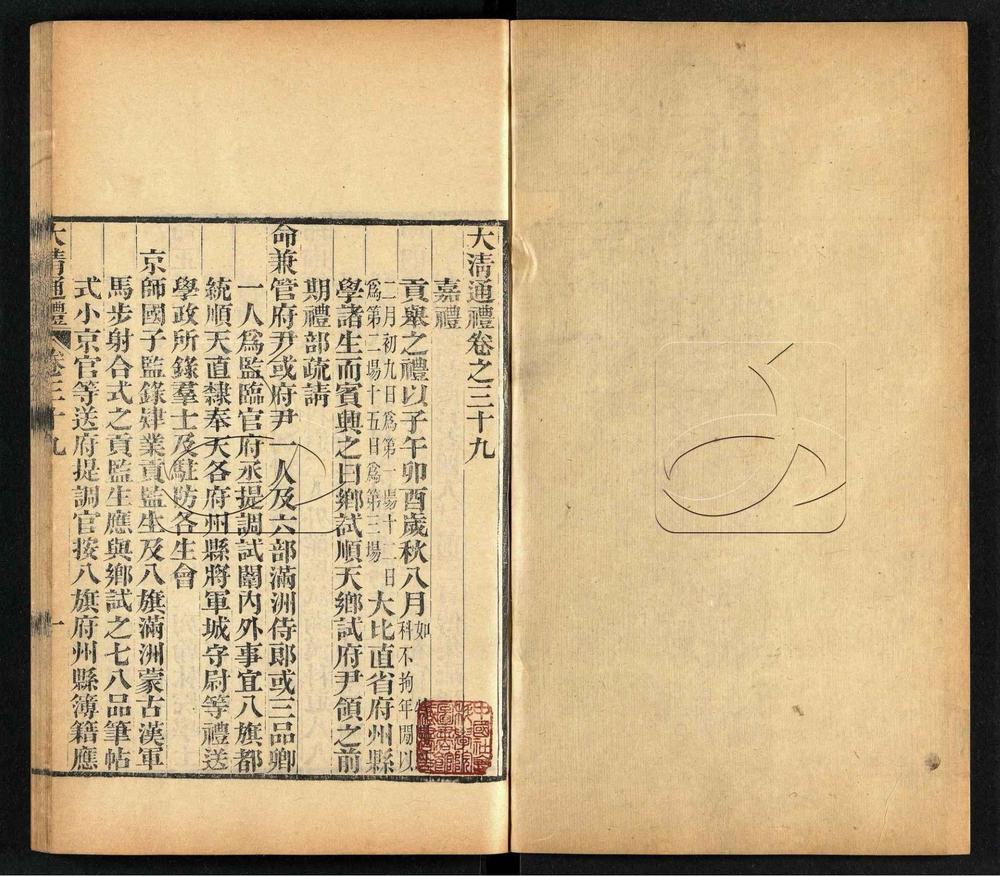 大淸通禮卷之三十九
嘉禮
貢舉之禮以子午卯酉歲秋八月如科不拘年閒以
二月初九日爲第一場十二日爲第二場十五日爲第三場大比直省府州縣
學諸生而賓興之曰鄉試順天鄉試府尹領之前
期禮部疏請
命兼管府尹或府尹一人及六部滿洲侍郎或三品卿
一人爲監臨官府丞提調試闈內外事宜八旗都
統順天直隸奉天各府州縣將軍城守尉等禮送
學政所錄羣士及駐防各生會
京師國子監錄肄業貢監生及八旗滿洲蒙古漢軍
馬步射合式之貢監生應與鄉試之七八品筆帖
式小京官等送府提調官按八旗府州縣簿籍應
大淸通禮 卷三十九 一
中國社